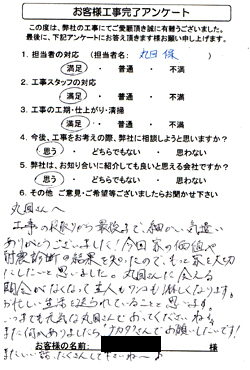 お客様工事完了アンケート
この度は、弊社の工事にてご愛顧頂き誠に有難うございました。
最後に、下記アンケートにお答え頂きます様お願い申し上げます。
1. 担当者の対応 (担当者名: 丸田 保 )
満足 ・ 普通 ・ 不満
2. 工事スタッフの対応
満足 ・ 普通 ・ 不満
3. 工事の工期・仕上がり・清掃
満足 ・ 普通 ・ 不満
4. 今後、工事をお考えの際、弊社に相談しようと思いますか?
思う ・ どちらでもない ・ 思わない
5. 弊社は、お知り合いに紹介しても良いと思える会社ですか?
思う ・ どちらでもない ・ 思わない
6. その他 ご意見・ご希望等ございましたらお聞かせ下さい
丸田さんへ
工事の見積りから最後まで、細かい気遣い
ありがとうございました!今回家の価値や
耐震診断の結果を知ったので、もっと家を大切
にしたいと思いました。丸田さんに会える
機会がなくなって主人もワンも淋しくなります。
お忙しい生活を送られていることと思います。
いつまでも元気な丸田さんでおってくださいね。
また何かありましたら「ナカタ」さんでお願いしたいです!
またいい話、たくさんして下さいね〜♪
お客様の名前: 様